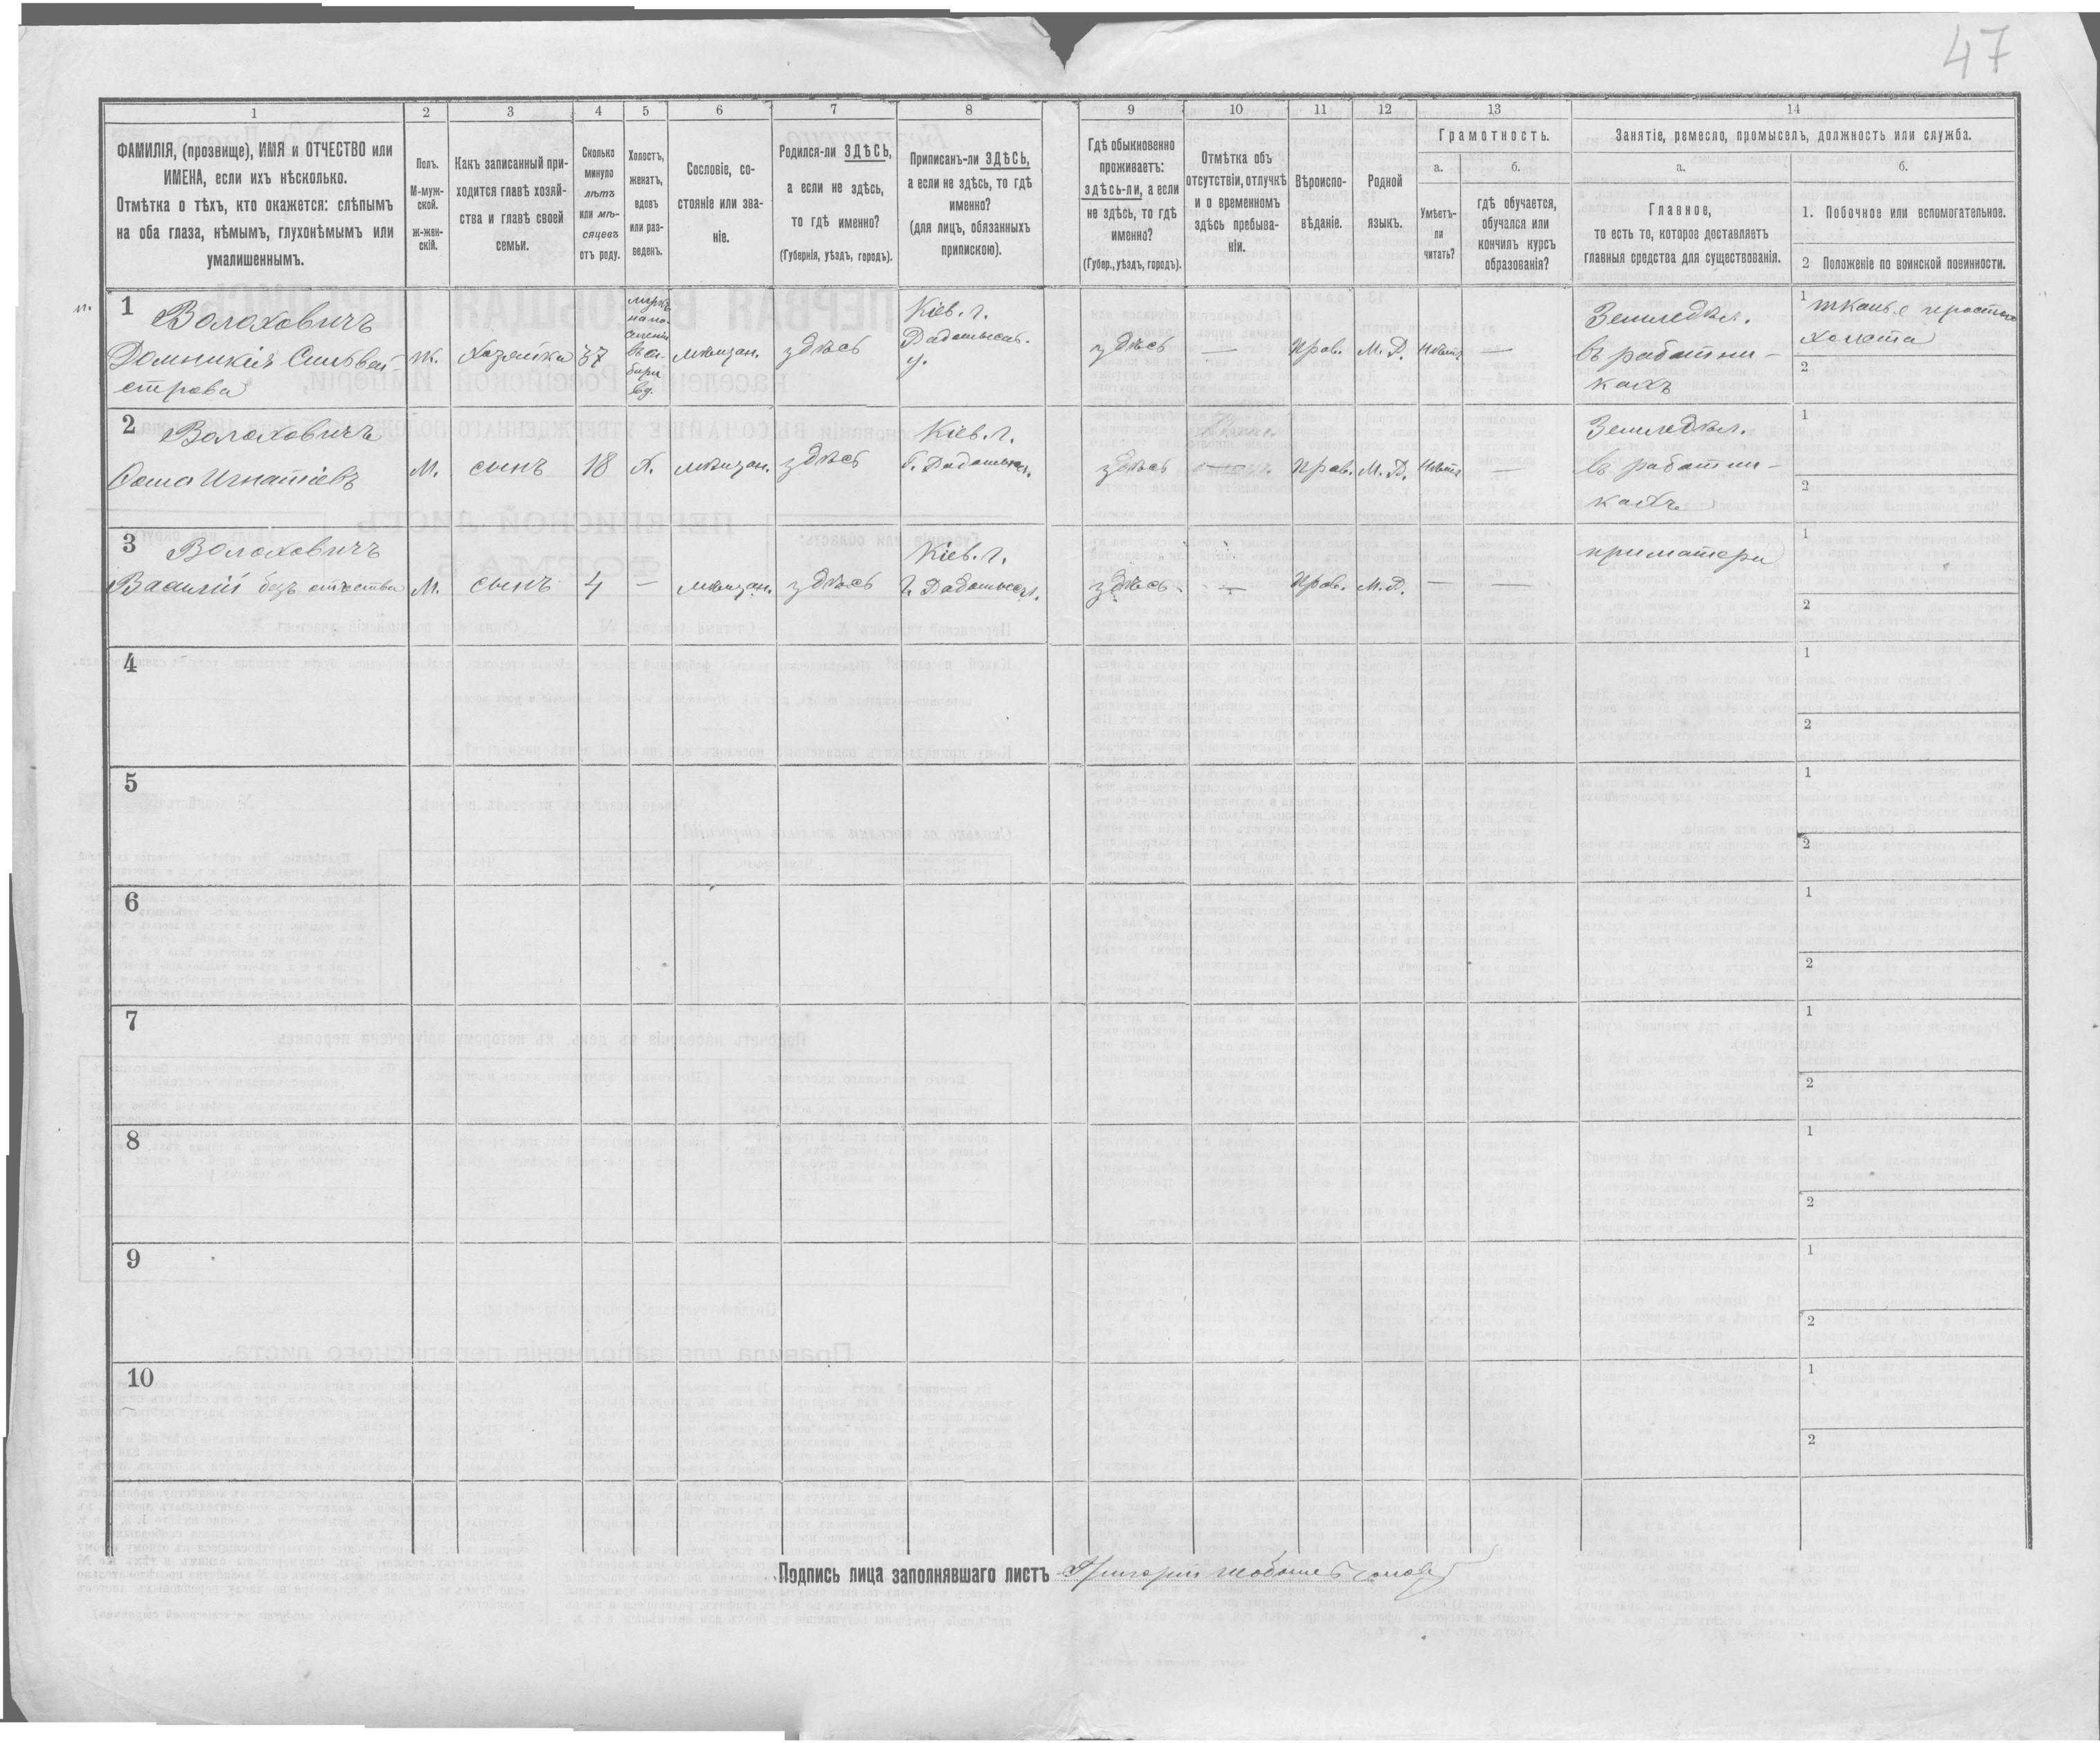 47
1
2
3
4
5
6
7
8
9
10
11
12
13
14
ФАМИЛІЯ, (прозвище), ИМЯ и ОТЧЕСТВО или
ИМЕНА, если ихъ нѣсколько.
Отмѣтка о тѣхъ, кто окажется: слѣпымъ
на оба глаза, нѣмымъ, глухонѣмымъ или
умалишеннымъ.
Полъ.
М-муж-
ской.
Ж-жен-
скій.
Какъ записанный при-
ходится главѣ хозяй-
ства и главѣ своей
семьи.
Сколько
минуло
лѣтъ
или мѣ-
сяцевъ
отъ роду.
Холостъ,
женатъ,
вдовъ
или раз-
веденъ.
Сословіе, со-
стояніе или зва-
ніе.
Родился-ли ЗДѢСЬ,
а если не здѣсь,
то гдѣ именно?
(Губернія, уѣздъ, городъ).
Приписанъ-ли ЗДѢСЬ,
а если не здѣсь, то гдѣ
именно?
(для лицъ, обязанныхъ
припискою).
Гдѣ обыкновенно
проживаетъ:
здѣсь-ли, а если
не здѣсь, то гдѣ
именно?
(Губер., уѣздъ, городъ).
Отмѣтка объ
отсутствіи, отлучкѣ
и о временномъ
здѣсь пребыва-
ніи.
Вѣроиспо-
вѣданіе.
Родной
языкъ.
Грамотность.
а.
Умѣетъ-
ли
читать?
б.
гдѣ обучается,
обучался или
кончилъ курсъ
образованія?
Занятіе, ремесло, промыселъ, должность или служба.
а.
Главное,
то есть то, которое доставляетъ
главныя средства для существованія.
б.
1. Побочное или вспомогательное.
2 Положеніе по воинской повинности.
1 Волоховичъ
Домникія Сильвей-
строва
ж. хозяйка 37
вд.
мѣщан. здѣсь
Кіев. г.
у.
здѣсь — прав. М. Р. нѣтъ —
Земледѣл.
въ работни-
кахъ
1 тканье простого
холста
2
2 Волоховичъ
Ѳома Игнатіевъ
М. сынъ 18 Х. мѣщан. здѣсь
Кіев. г.
здѣсь прав. М. Р. нѣтъ —
Земледѣл.
въ работни-
кахъ
1
2
3 Волоховичъ
Василій безъ отчества
М. сынъ 4 — мѣщан. здѣсь
Кіев. г.
здѣсь. — прав. М. Р. — —
при матери
1
2
4
1
2
5
1
2
6
1
2
7
1
2
8
1
2
9
1
2
10
1
2
Подпись лица заполнявшаго листъ Григорій